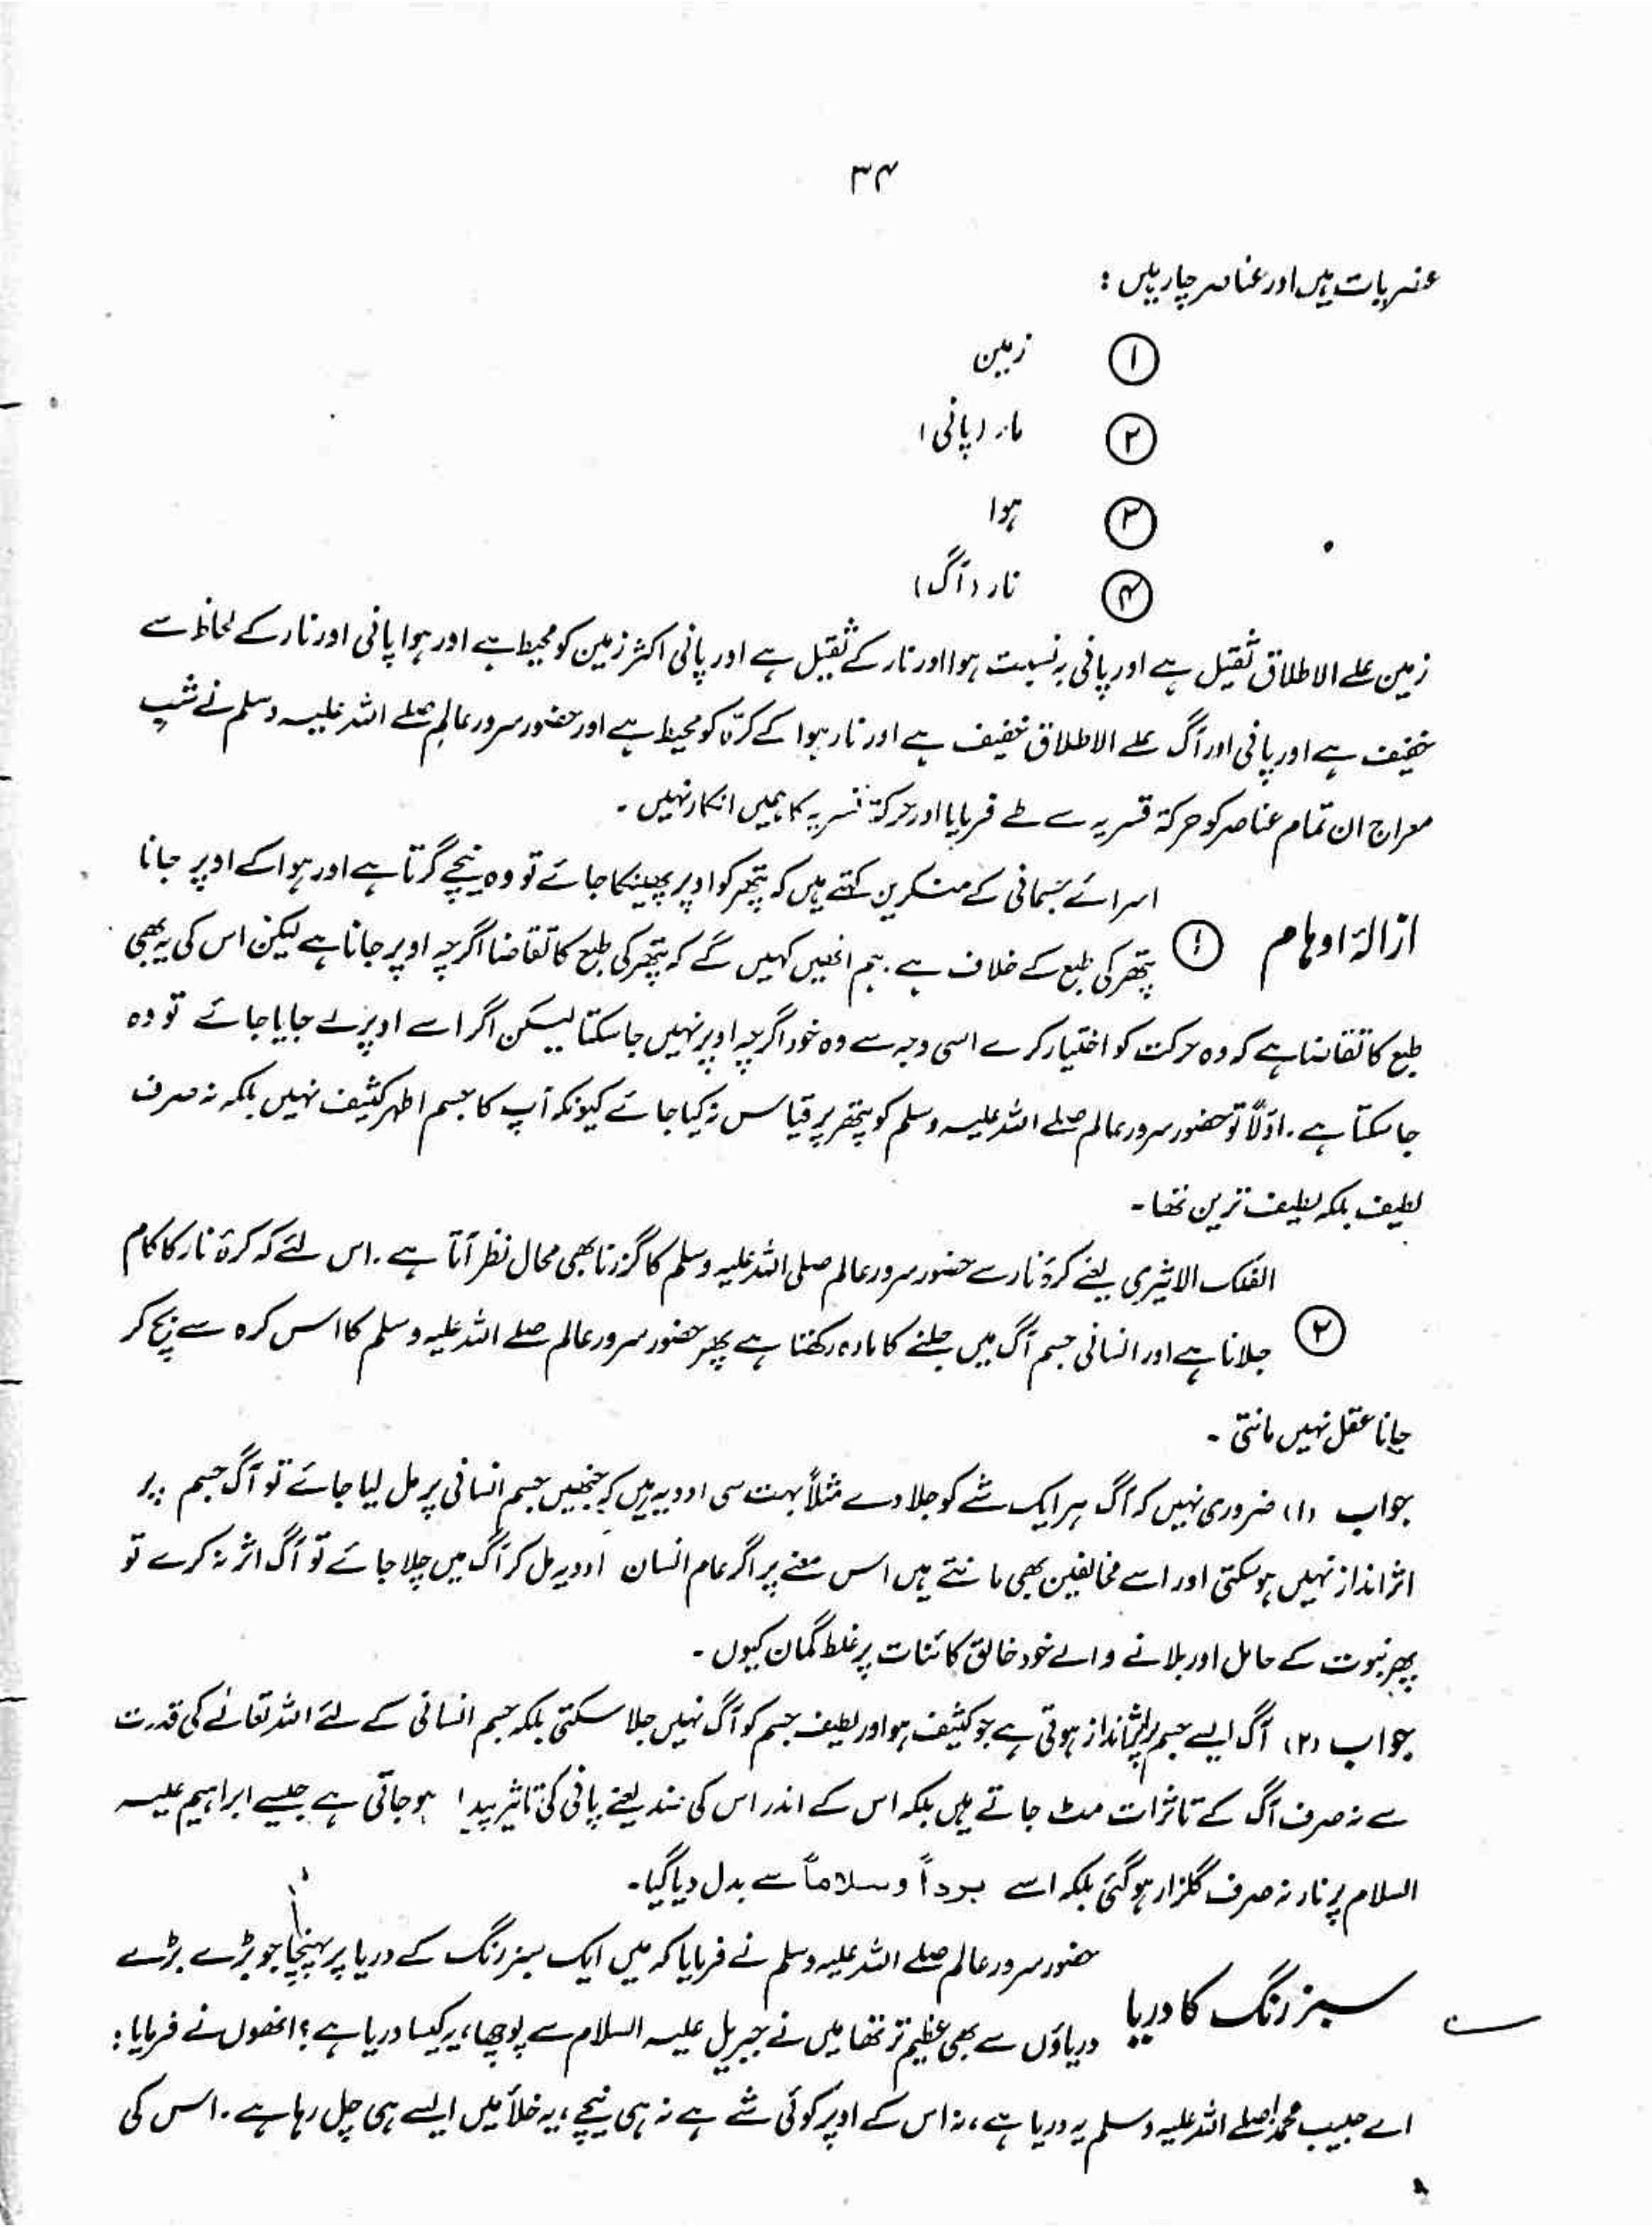 ۳۴
عنصریات ہیں اور عناصر چار ہیں :
① زمین
② ماء (پانی)
③ ہوا
④ نار (آگ)
زمین علے الاطلاق ثقیل ہے اور پانی بہ نسبت ہوا اور نار کے ثقیل ہے اور پانی اکثر زمین کو محیط ہے اور ہوا پانی اور نار کے لحاظ سے
خفیف ہے اور پانی اور آگ علے الاطلاق خفیف ہے اور نار ہوا کے کرّہ کو محیط ہے اور حضور سرور عالم صلے اللہ علیہ وسلم نے شبِ
معراج ان تمام عناصر کو حرکۃ قسریہ سے طے فرمایا اور حرکۃ قسریہ کا ہمیں انکار نہیں ۔
اسرائے جسمانی کے منکرین کہتے ہیں کہ پتھر کو اوپر پھینکا جائے تو وہ نیچے گرتا ہے اور ہوا کے اوپر جانا
ازالۂ اوہام ① پتھر کی طبع کے خلاف ہے . ہم انھیں کہیں گے کہ پتھر کی طبع کا تقاضا اگرچہ اوپر جانا ہے لیکن اس کی یہ بھی
طبع کا تقاضا ہے کہ وہ حرکت کو اختیار کرے اسی وجہ سے وہ خود اگرچہ اوپر نہیں جا سکتا لیکن اگر اسے اوپر لے جایا جائے تو وہ
جا سکتا ہے . اوّلاً تو حضور سرور عالم صلے اللہ علیہ وسلم کو پتھر پر قیاس نہ کیا جائے کیونکہ آپ کا جسم اطہر کثیف نہیں بلکہ نہ صرف
لطیف بلکہ لطیف ترین تھا ۔
الفلک الاثیری یعنے کرۂ نار سے حضور سرور عالم صلی اللہ علیہ وسلم کا گزرنا بھی محال نظر آتا ہے . اس لئے کہ کرۂ نار کا کام
② جلانا ہے اور انسانی جسم آگ میں جلنے کا مادہ رکھتا ہے پھر حضور سرور عالم صلے اللہ علیہ وسلم کا اس کرہ سے بچ کر
جانا عقل نہیں مانتی ۔
جواب (۱) ضروری نہیں کہ آگ ہر ایک شے کو جلا دے مثلاً بہت سی ادویہ ہیں کہ جنھیں جسم انسانی پر مل لیا جائے تو آگ جسم پر
اثر انداز نہیں ہو سکتی اور اسے مخالفین بھی مانتے ہیں اس معنے پر اگر عام انسان ادویہ مل کر آگ میں چلا جائے تو آگ اثر نہ کرے تو
پھر نبوت کے حامل اور بلانے والے خود خالق کائنات پر غلط گمان کیوں ۔
جواب (۲) آگ ایسے جسم پر اثر انداز ہوتی ہے جو کثیف ہو اور لطیف جسم کو آگ نہیں جلا سکتی بلکہ جسم انسانی کے لئے اللہ تعالےٰ کی قدرت
سے نہ صرف آگ کے تاثرات مٹ جاتے ہیں بلکہ اس کے اندر اس کی ضد یعنے پانی کی تاثیر پیدا ہو جاتی ہے جیسے ابراہیم علیہ
السلام پر نار نہ صرف گلزار ہو گئی بلکہ اسے برداً وسلاماً سے بدل دیا گیا ۔
حضور سرور عالم صلے اللہ علیہ وسلم نے فرمایا کہ میں ایک سبز رنگ کے دریا پر پہنچا جو بڑے بڑے
سبز رنگ کا دریا دریاؤں سے بھی عظیم تر تھا میں نے جبریل علیہ السلام سے پوچھا، یہ کیسا دریا ہے؟ انھوں نے فرمایا :
اے حبیب محمد صلے اللہ علیہ وسلم یہ دریا ہے، نہ اس کے اوپر کوئی شے ہے نہ ہی نیچے، یہ خلأ میں ایسے ہی چل رہا ہے . اس کی